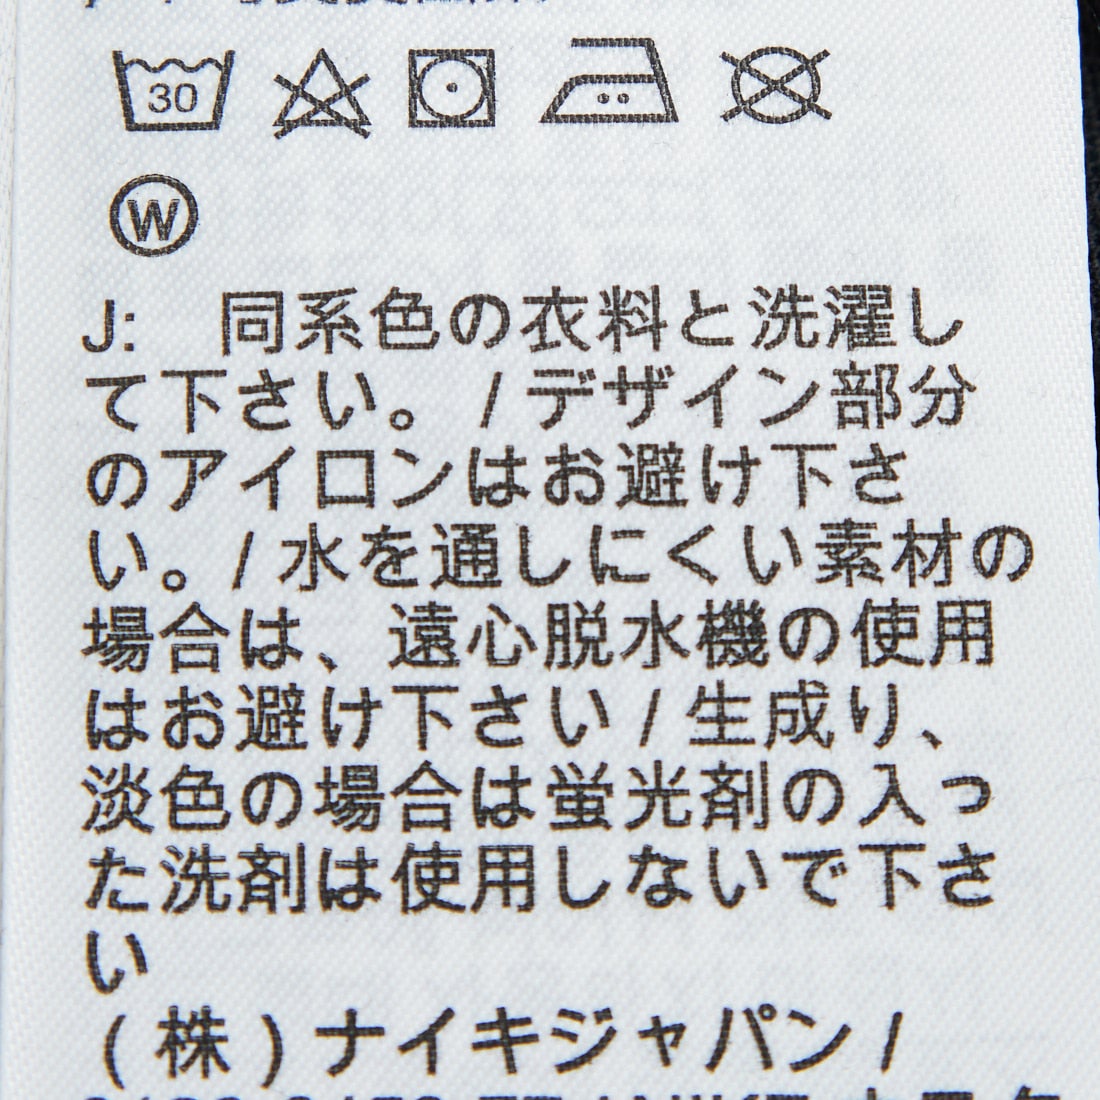 30
W
J: 同系色の衣料と洗濯し
て下さい。 / デザイン部分
のアイロンはお避け下さ
い。 / 水を通しにくい素材の
場合は、遠心脱水機の使用
はお避け下さい / 生成り、
淡色の場合は蛍光剤の入っ
た洗剤は使用しないで下さ
い
(株)ナイキジャパン /